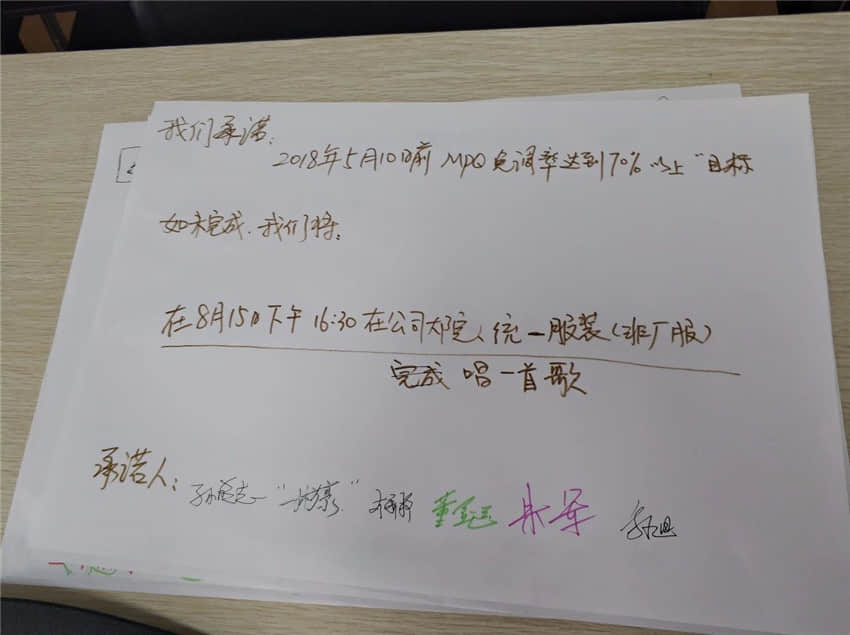 我们承诺:
2018年5月10日前 MPQ免调率达到70%以上"目标
如未完成,我们将:
在8月15日下午16:30在公司大院,统一服装(非厂服)
完成 唱一首歌
承诺人: